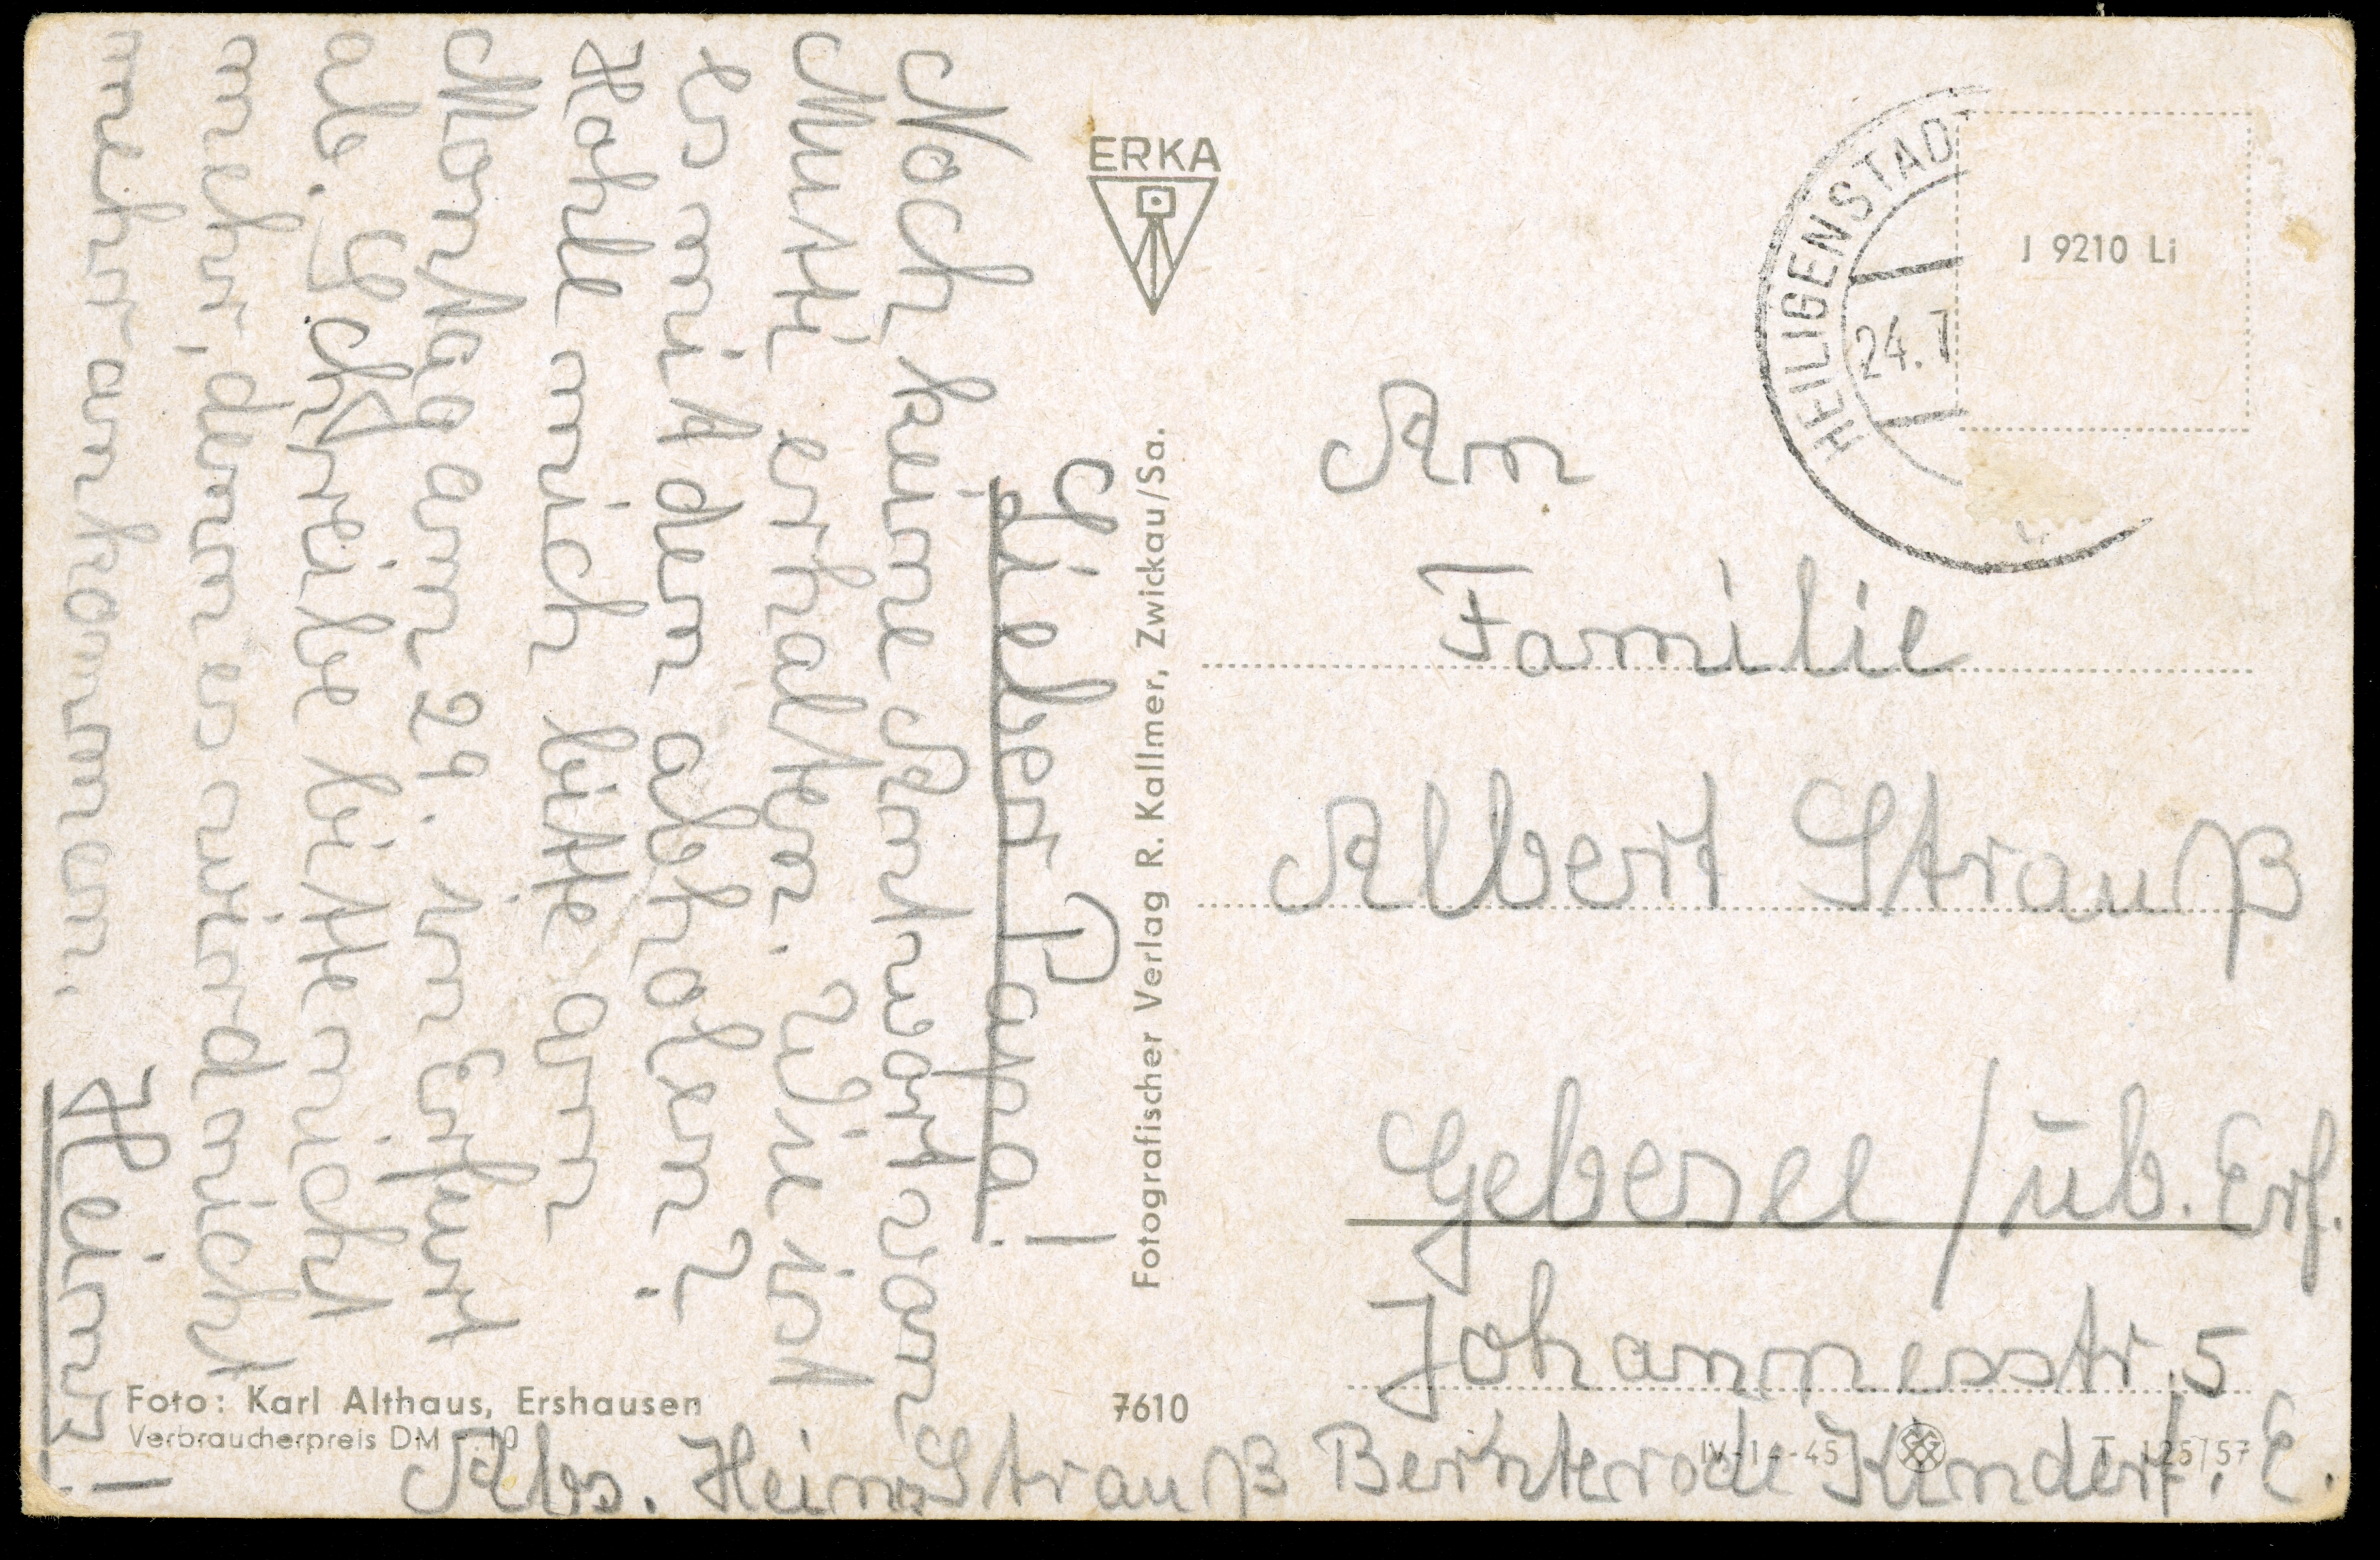 Lieber Papa!
Noch keine Antwort von
Mutti erhalten. Wie ist
es mit den abholen?
Hohle mich bitte am
Montag am 29. in Erfurt
ab. Schreibe bitte nicht
mehr, denn es wird nicht
mehr ankommen.
Heinz!
ERKA
Fotografischer Verlag R. Kallmer, Zwickau/Sa.
HEILIGENSTAD
24.7
J 9210 Li
An
Familie
Albert Strauß
Gebesee / üb. Erf.
Johannesstr. 5
Foto: Karl Althaus, Ershausen
Verbraucherpreis DM -.10
7610
IV-14-45
T 125/57
Abs. Heinz Strauß Bernterode Kinderf. E.